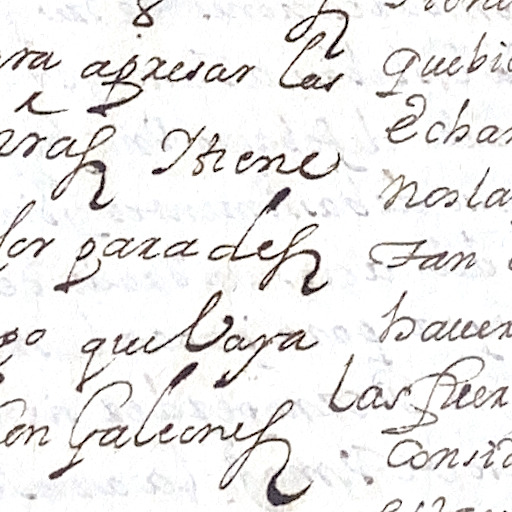 ra apresar las
ras Ytiene
lor parades
go que vaya
en Galeones
quebi
echar
nosla
tan
hauer
las fuer
Consid